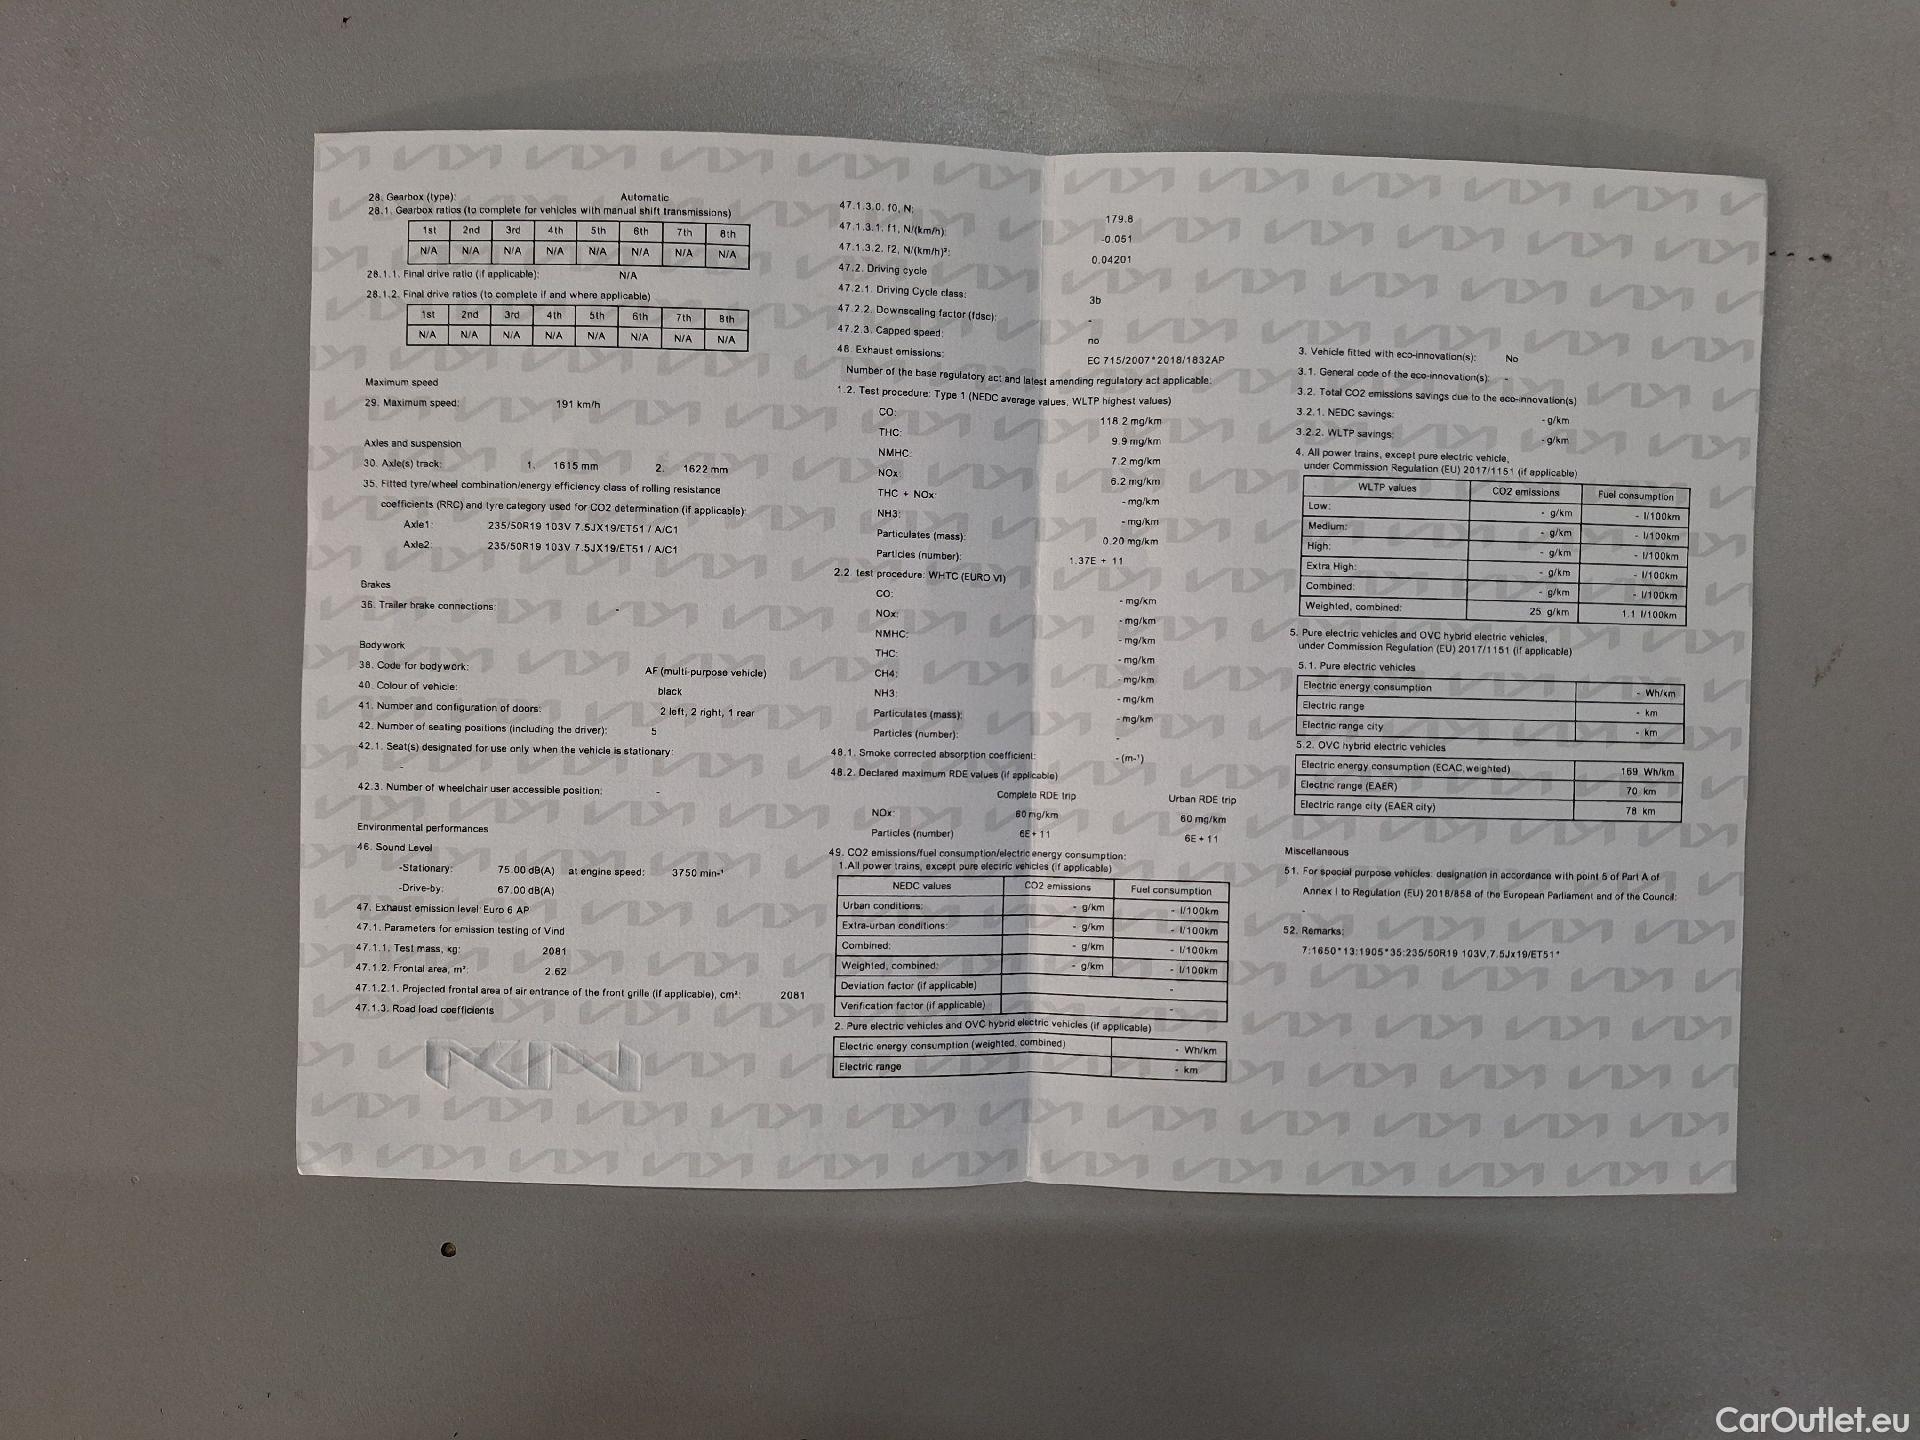 28. Gearbox (type): Automatic
28.1. Gearbox ratios (to complete for vehicles with manual shift transmissions)
1st 2nd 3rd 4th 5th 6th 7th 8th
N/A N/A N/A N/A N/A N/A N/A N/A
28.1.1. Final drive ratio (if applicable): N/A
28.1.2. Final drive ratios (to complete if and where applicable)
1st 2nd 3rd 4th 5th 6th 7th 8th
N/A N/A N/A N/A N/A N/A N/A N/A
Maximum speed
29. Maximum speed: 191 km/h
Axles and suspension
30. Axle(s) track: 1. 1615 mm 2. 1622 mm
35. Fitted tyre/wheel combination/energy efficiency class of rolling resistance
coefficients (RRC) and tyre category used for CO2 determination (if applicable):
Axle1: 235/50R19 103V 7.5JX19/ET51 / A/C1
Axle2: 235/50R19 103V 7.5JX19/ET51 / A/C1
Brakes
36. Trailer brake connections: -
Bodywork
38. Code for bodywork: AF (multi-purpose vehicle)
40. Colour of vehicle: black
41. Number and configuration of doors: 2 left, 2 right, 1 rear
42. Number of seating positions (including the driver): 5
42.1. Seat(s) designated for use only when the vehicle is stationary:
-
42.3. Number of wheelchair user accessible position: -
Environmental performances
46. Sound Level
-Stationary: 75.00 dB(A) at engine speed: 3750 min-¹
-Drive-by: 67.00 dB(A)
47. Exhaust emission level: Euro 6 AP
47.1. Parameters for emission testing of Vind
47.1.1. Test mass, kg: 2081
47.1.2. Frontal area, m²: 2.62
47.1.2.1. Projected frontal area of air entrance of the front grille (if applicable), cm²: 2081
47.1.3. Road load coefficients
KIA
47.1.3.0. f0, N: 179.8
47.1.3.1. f1, N/(km/h): -0.051
47.1.3.2. f2, N/(km/h)²: 0.04201
47.2. Driving cycle
47.2.1. Driving Cycle class: 3b
47.2.2. Downscaling factor (fdsc): -
47.2.3. Capped speed: no
48. Exhaust emissions: EC 715/2007*2018/1832AP
Number of the base regulatory act and latest amending regulatory act applicable:
1.2. Test procedure: Type 1 (NEDC average values, WLTP highest values)
CO: 118.2 mg/km
THC: 9.9 mg/km
NMHC: 7.2 mg/km
NOx: 6.2 mg/km
THC + NOx: - mg/km
NH3: - mg/km
Particulates (mass): 0.20 mg/km
Particles (number): 1.37E + 11
2.2. test procedure: WHTC (EURO VI)
CO: - mg/km
NOx: - mg/km
NMHC: - mg/km
THC: - mg/km
CH4: - mg/km
NH3: - mg/km
Particulates (mass): - mg/km
Particles (number): -
48.1. Smoke corrected absorption coefficient: - (m-¹)
48.2. Declared maximum RDE values (if applicable)
Complete RDE trip Urban RDE trip
NOx: 60 mg/km 60 mg/km
Particles (number) 6E+11 6E+11
49. CO2 emissions/fuel consumption/electric energy consumption:
1.All power trains, except pure electric vehicles (if applicable)
NEDC values CO2 emissions Fuel consumption
Urban conditions: - g/km - l/100km
Extra-urban conditions: - g/km - l/100km
Combined: - g/km - l/100km
Weighted, combined: - g/km - l/100km
Deviation factor (if applicable) -
Verification factor (if applicable) -
2. Pure electric vehicles and OVC hybrid electric vehicles (if applicable)
Electric energy consumption (weighted, combined) - Wh/km
Electric range - km
3. Vehicle fitted with eco-innovation(s): No
3.1. General code of the eco-innovation(s): -
3.2. Total CO2 emissions savings due to the eco-innovation(s)
3.2.1. NEDC savings: - g/km
3.2.2. WLTP savings: - g/km
4. All power trains, except pure electric vehicle,
under Commission Regulation (EU) 2017/1151 (if applicable)
WLTP values CO2 emissions Fuel consumption
Low: - g/km - l/100km
Medium: - g/km - l/100km
High: - g/km - l/100km
Extra High: - g/km - l/100km
Combined: - g/km - l/100km
Weighted, combined: 25 g/km 1.1 l/100km
5. Pure electric vehicles and OVC hybrid electric vehicles,
under Commission Regulation (EU) 2017/1151 (if applicable)
5.1. Pure electric vehicles
Electric energy consumption - Wh/km
Electric range - km
Electric range city - km
5.2. OVC hybrid electric vehicles
Electric energy consumption (ECAC,weighted) 169 Wh/km
Electric range (EAER) 70 km
Electric range city (EAER city) 78 km
Miscellaneous
51. For special purpose vehicles: designation in accordance with point 5 of Part A of
Annex I to Regulation (EU) 2018/858 of the European Parliament and of the Council:
-
52. Remarks:
7:1650*13:1905*35:235/50R19 103V,7.5Jx19/ET51*
CarOutlet.eu